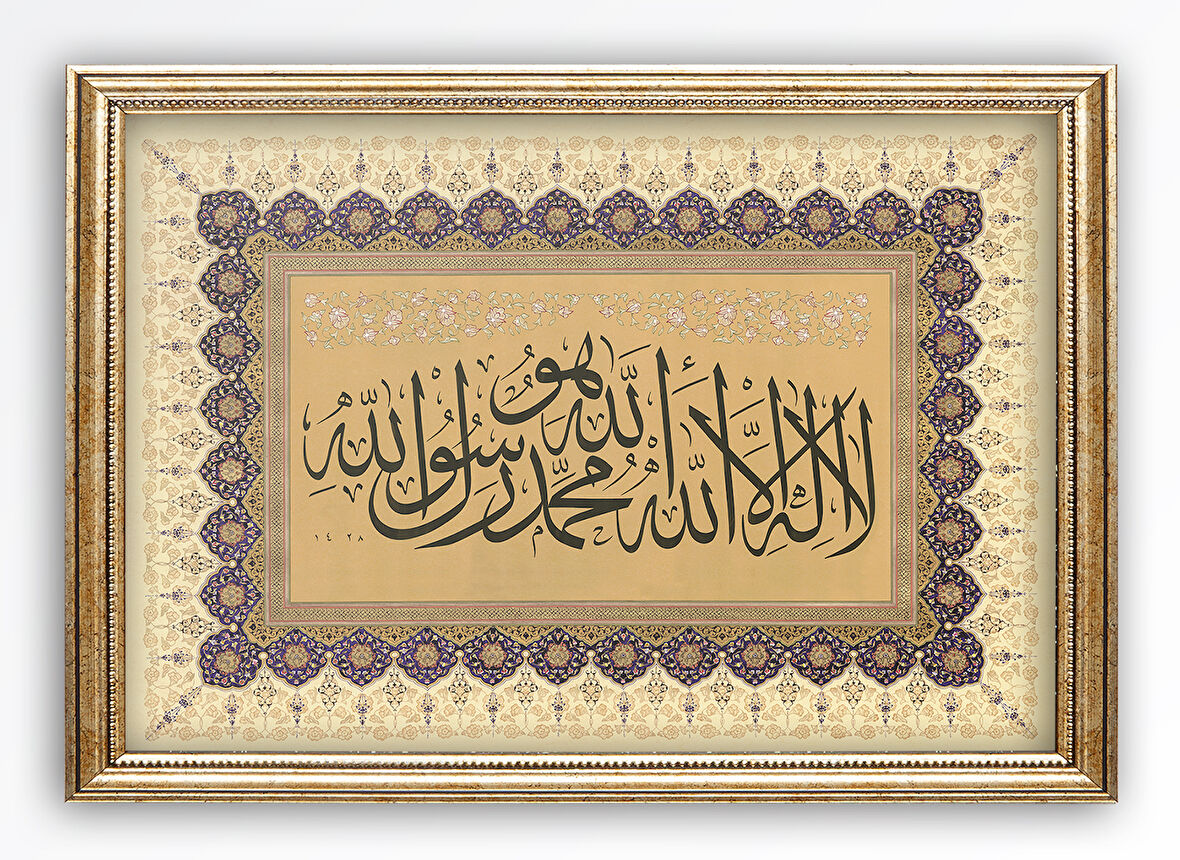 الله هو
لا اله الا الله محمد رسول الله
١٤٢٨